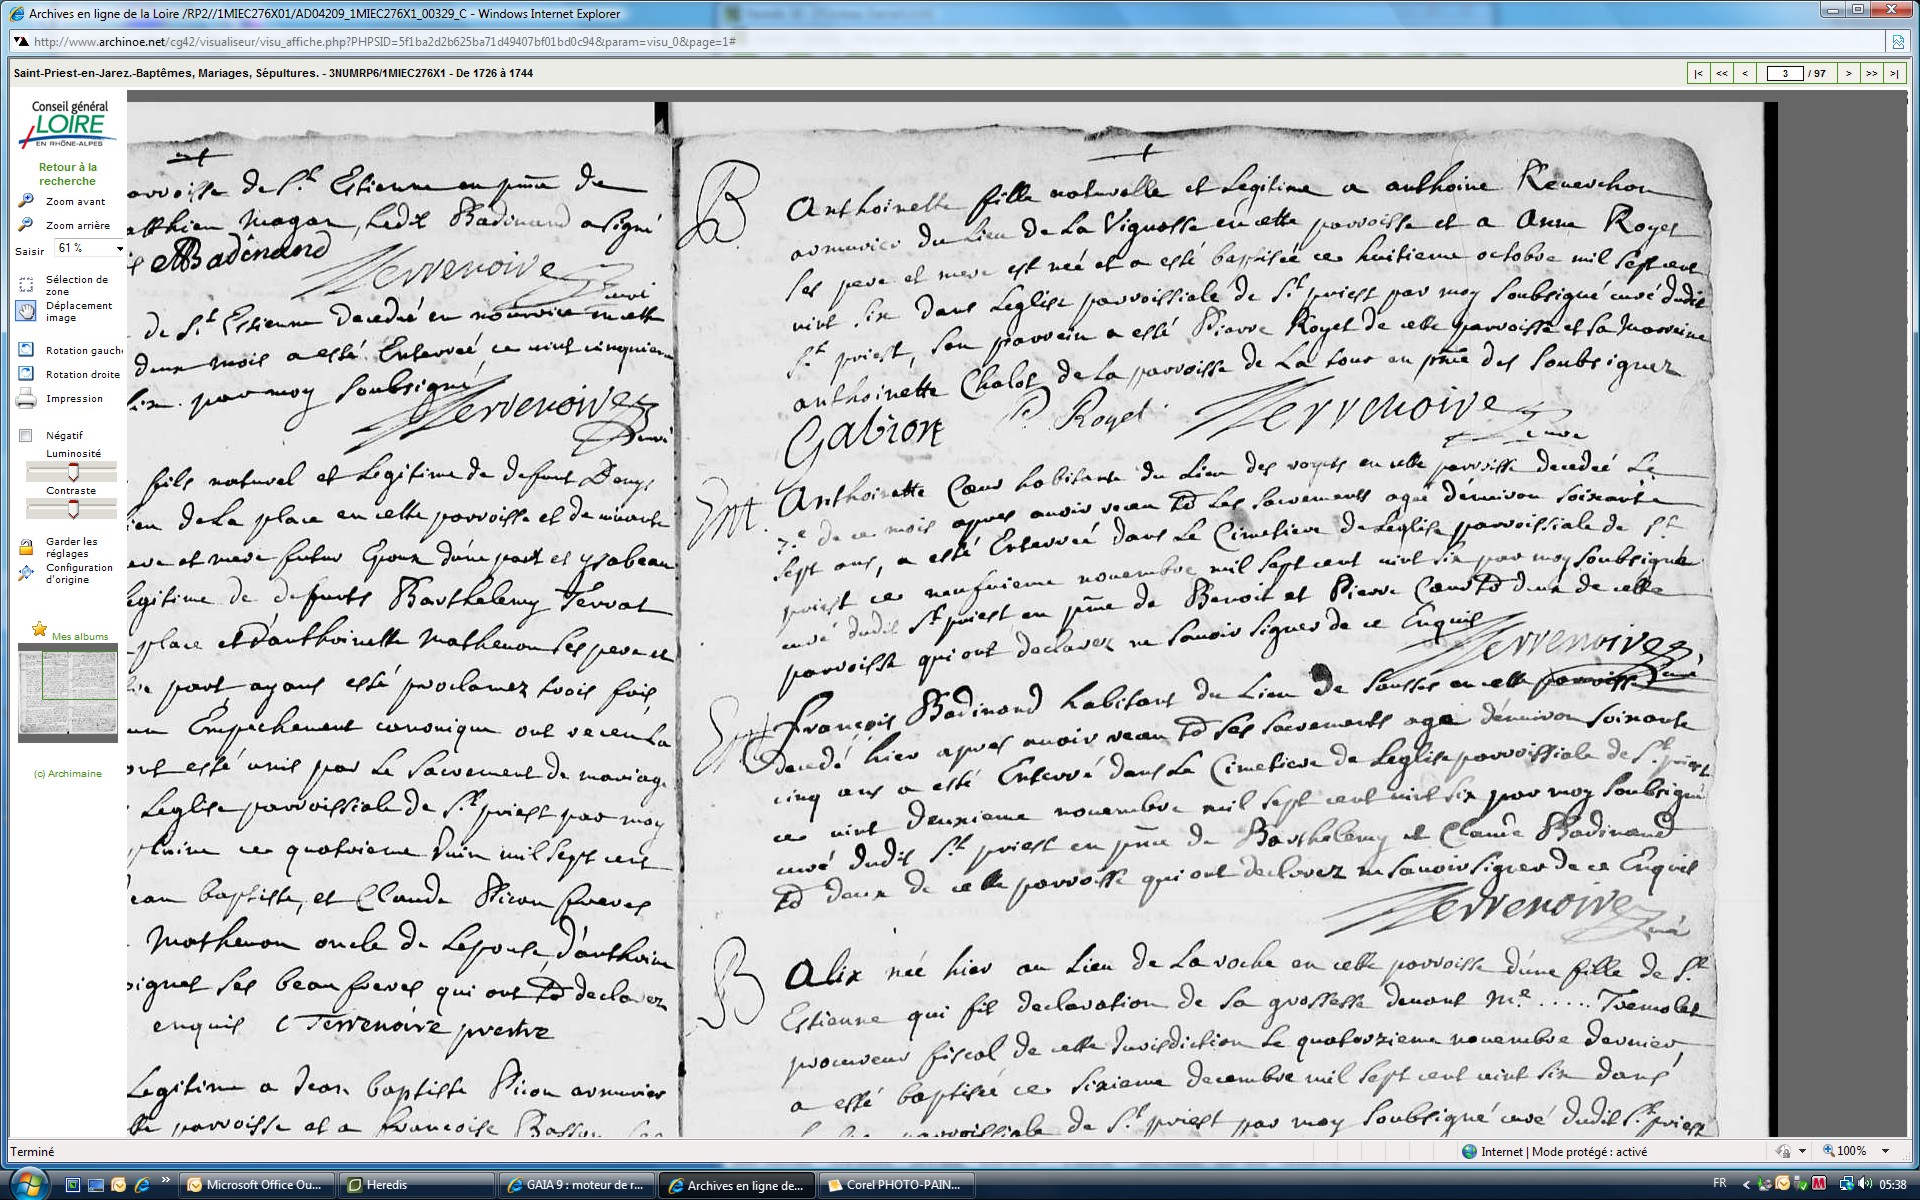 Archives en ligne de la Loire /RP2//1MIEC276X01/AD04209_1MIEC276X1_00329_C - Windows Internet Explorer
http://www.archinoe.net/cg42/visualiseur/visu_affiche.php?PHPSID=5f1ba2d2b625ba71d49407bf01bd0c94&param=visu_0&page=1#
Saint-Priest-en-Jarez.-Baptêmes, Mariages, Sépultures. - 3NUMRP6/1MIEC276X1 - De 1726 à 1744
|< << < 3 / 97 > >> >|
Conseil général
LOIRE
EN RHÔNE-ALPES
Retour à la
recherche
Zoom avant
Zoom arrière
Saisir 61 %
Sélection de
zone
Déplacement
image
Rotation gauch
Rotation droite
Impression
Négatif
Luminosité
Contraste
Garder les
réglages
Configuration
d'origine
Mes albums
(c) Archimaine
de St Estienne en pnce de
Magan, ledit Badinand a signé
Badinand
Terrenoire
curé
de St Estienne decedée en nourrice en cette
deux mois a esté Enterreé, ce vint cinquieme
par moy soubsigné
Terrenoire
curé
fils naturel et Legitime de defunt Denys
de La place en cette parroisse et de
et mere futur Epoux d'une part et ysabeau
legitime de defunts Barthelemy Terrat
place et d'anthoinette Mathevon ses pere et
part ayans esté proclamez trois fois,
Empechement canonique ont receu La
ont esté unis par Le sacrement de mariage
Leglise parroissiale de St priest par moy
ce quatrieme Juin mil sept cent
baptiste, et Claude Picon freres
Mathevon oncle de Lepouse, d'anthoine
ses beaufreres qui ont tö declarez
enquis C Terrenoire prestre
Legitime a Jean baptiste Picon armurier
parroisse et a francoise
B
Anthoinette fille naturelle et Legitime a anthoine Reverchon
armurier du Lieu de La Vignasse en cette parroisse et a Anne Royet
ses pere et mere est neé et a esté baptisée ce huitieme octobre mil sept cent
vint six dans Leglise parroissiale de St priest par moy soubsigné curé dudit
St priest, son parrein a esté Pierre Royet de cette parroisse et sa marreine
anthoinette Chalot de la parroisse de La tour en pnce des soubsignez
Gabion P Royet Terrenoire
curé
Ent.
Anthoinette Cœur habitante du Lieu des royets en cette parroisse decedeé Le
7e de ce mois apres avoir receu tö Les sacrements ageé d'environ soixante
sept ans, a esté Enterreé dans Le Cimetiere de Leglise parroissiale de St
priest ce neufvieme novembre mil sept cent vint six par moy soubsigné
curé dudit St priest en pnce de Benoit et Pierre Cœur tö deux de cette
parroisse qui ont declarez ne savoir signer de ce Enquis
Terrenoire
curé
Ent
François Badinand habitant du Lieu de en cette parroisse
decedé hier apres avoir receu tö Les sacrements agé d'environ soixante
cinq ans a esté Enterré dans Le Cimetiere de Leglise parroissiale de St priest
ce vint deuxieme novembre mil sept cent vint six par moy soubsigné
curé dudit St priest en pnce de Barthelemy et Claude Badinand
tö deux de cette parroisse qui ont declarez ne savoir signer de ce Enquis
Terrenoire
curé
B
Alix neé hier au Lieu de La roche en cette parroisse d'une fille de St
Estienne qui fit declaration de sa grossesse devant Me ..... Tremolet
procureur fiscal de cette Jurisdiction Le quatorzieme novembre dernier
a esté baptiseé ce sixieme decembre mil sept cent vint six dans
parroissiale de St priest par moy soubsigné curé dudit St priest
Terminé
Internet | Mode protégé : activé
100%
Microsoft Office Ou...
Heredis
GAIA 9 : moteur de r...
Archives en ligne de...
Corel PHOTO-PAIN...
FR
05:38